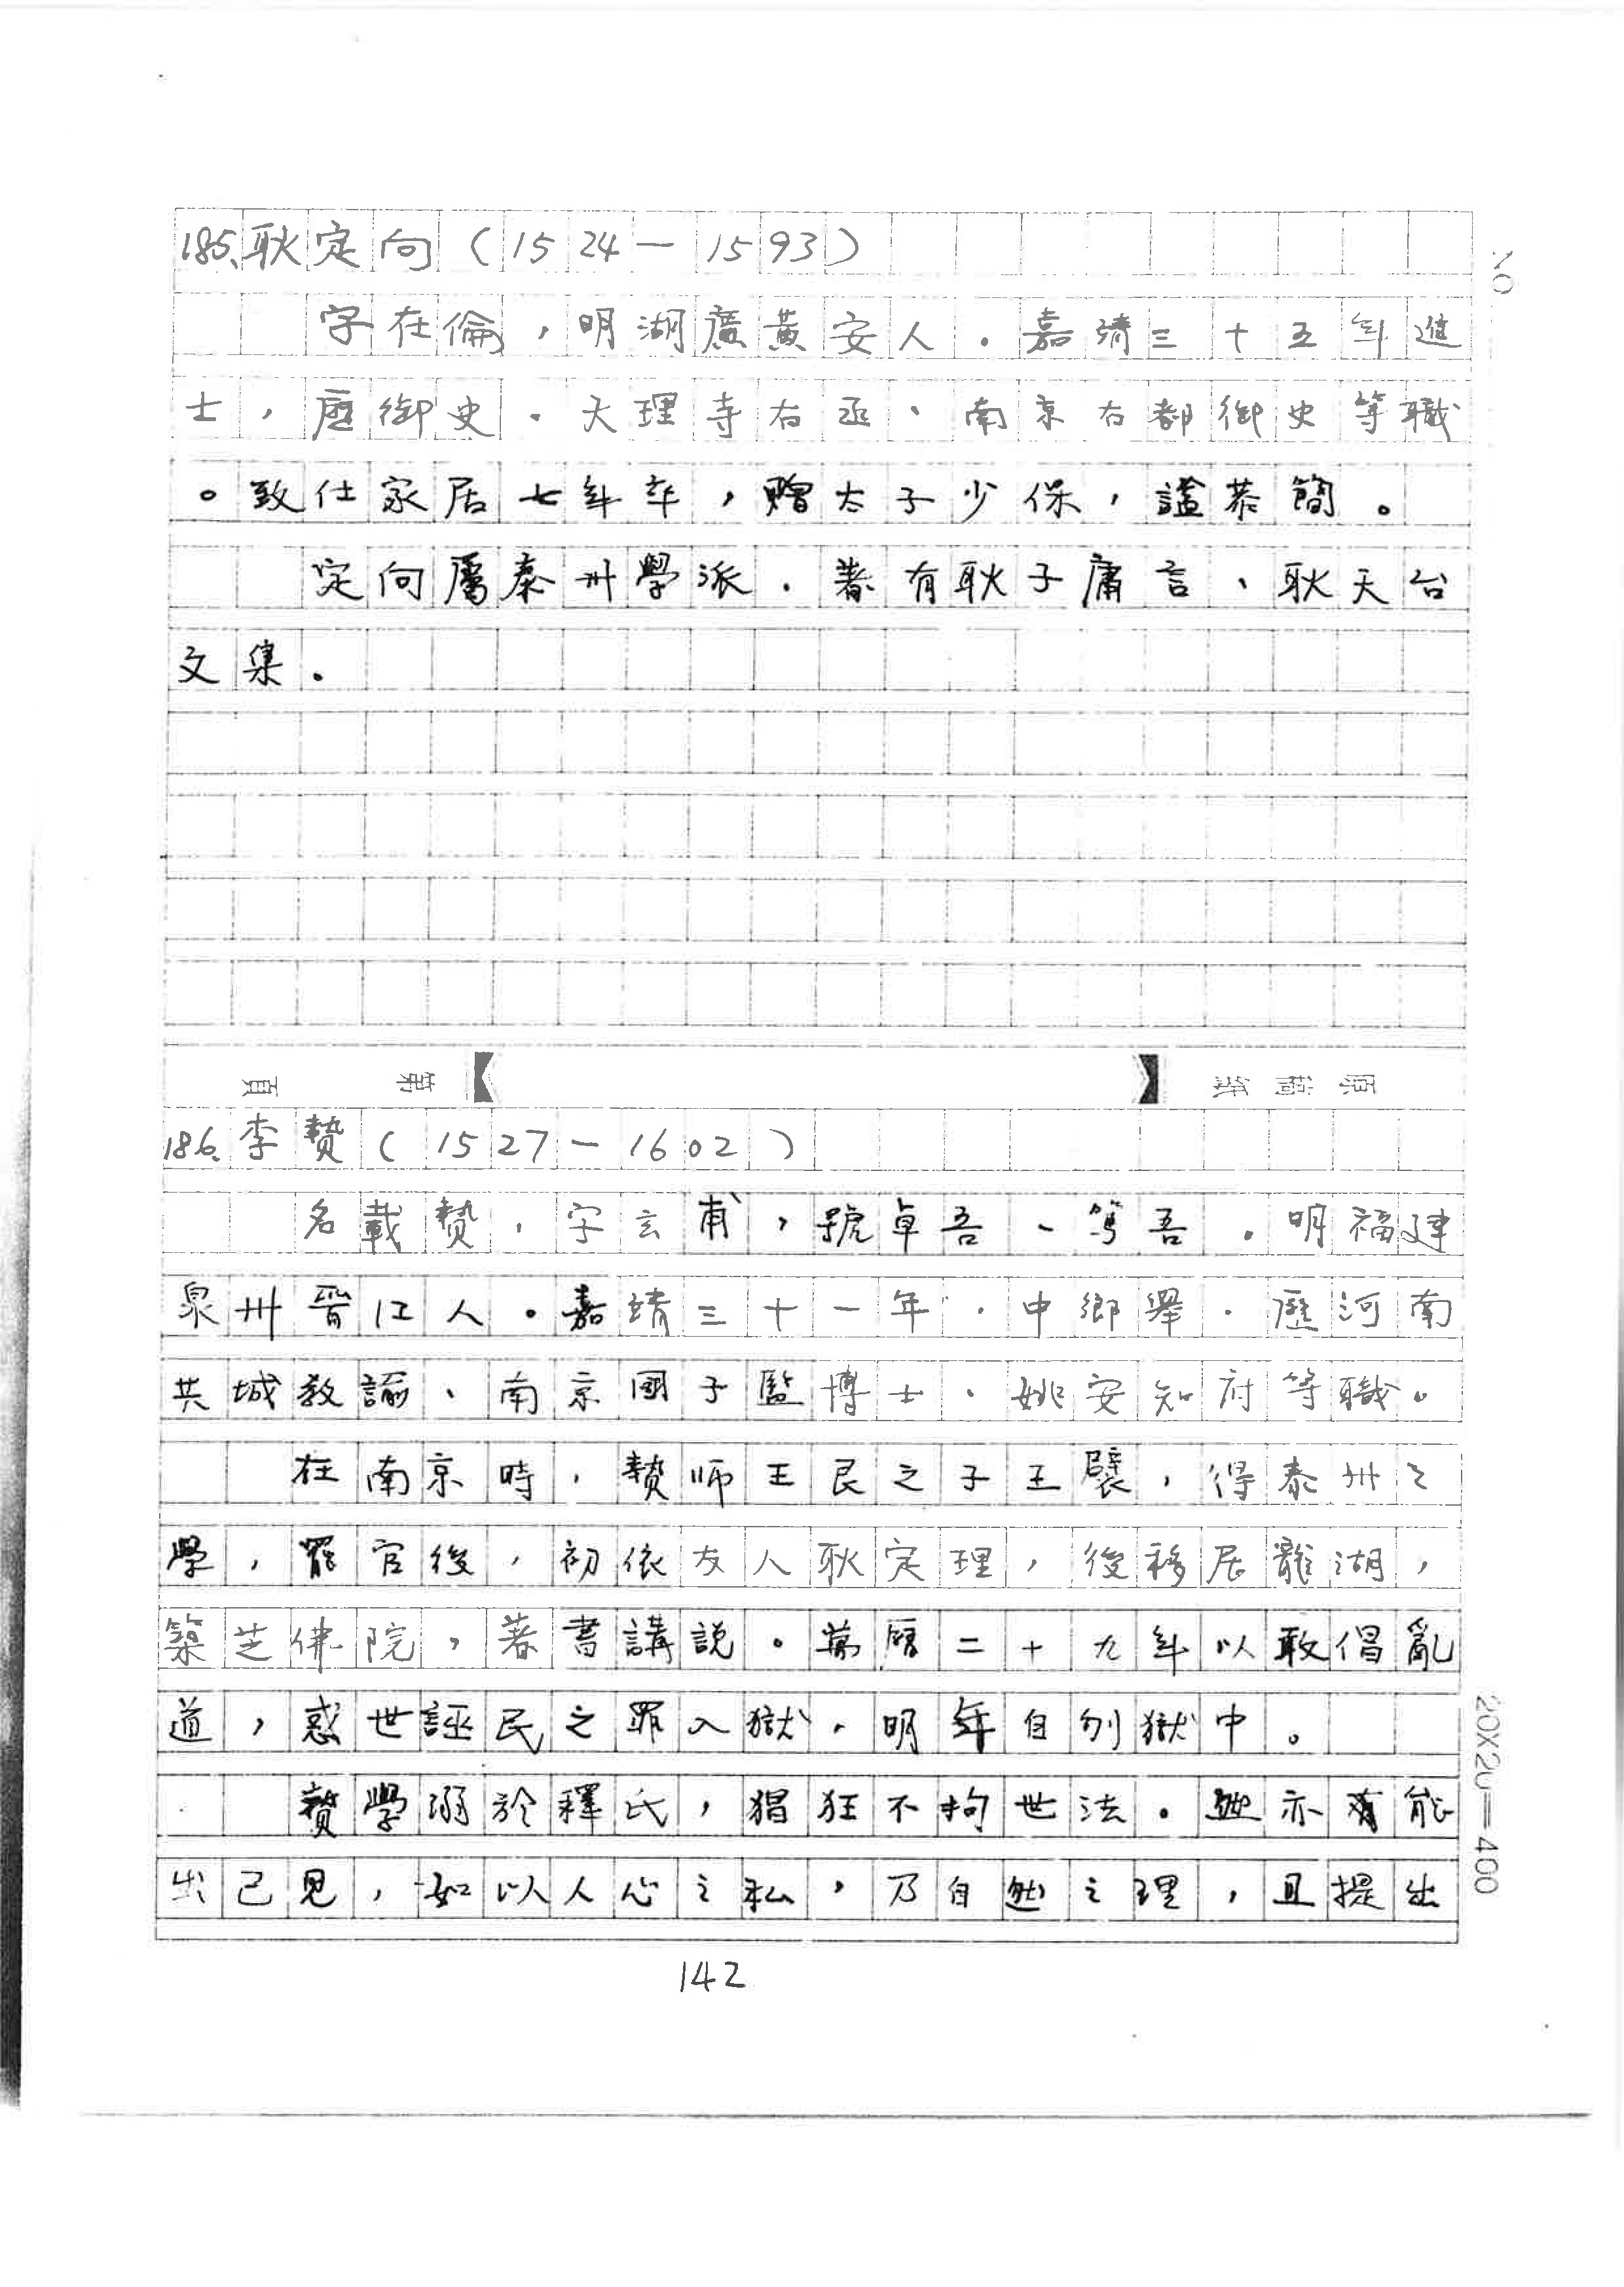 185.耿定向(1524-1593)
字在倫,明湖廣黃安人。嘉靖三十五年進
士,歷御史、大理寺右丞、南京右都御史等職
。致仕家居七年卒,贈太子少保,諡恭簡。
定向屬泰州學派。著有耿子庸言、耿天台
文集。
頁 第 原稿紙
186.李贄(1527-1602)
名載贄,字玄甫,號卓吾、篤吾。明福建
泉州晉江人。嘉靖三十一年,中鄉舉。歷河南
共城教諭、南京國子監博士、姚安知府等職。
在南京時,贄師王艮之子王襞,得泰州之
學,罷官後,初依友人耿定理,後移居龍湖,
築芝佛院,著書講說。萬曆二十九年以敢倡亂
道,惑世誣民之罪入獄,明年自刎獄中。
贄學溺於釋氏,猖狂不拘世法。然亦有能
出己見,如以人心之私,乃自然之理,且提出
142
No
20X20=400